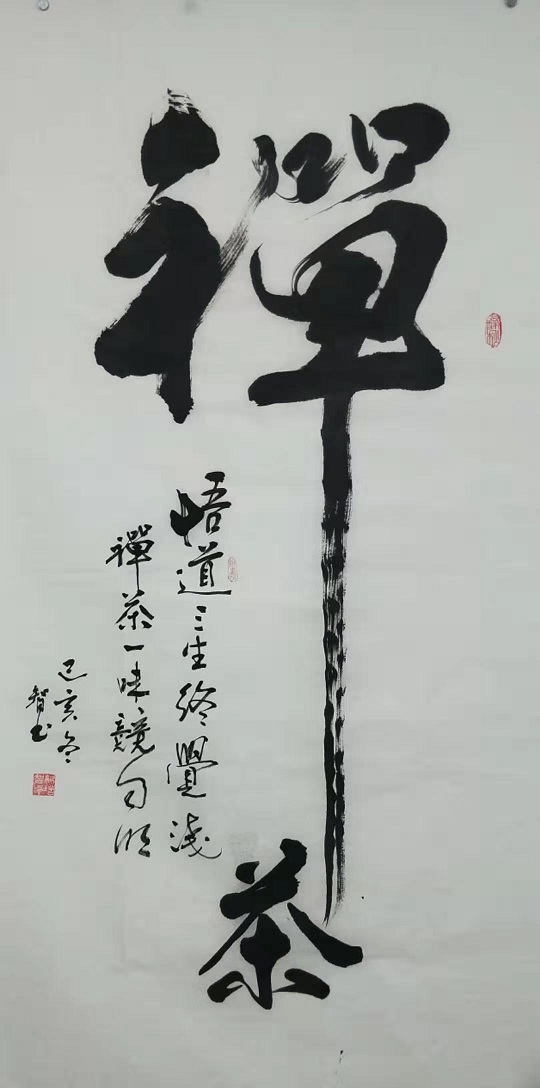 禪
茶
悟道三生終覺淺
禪茶一味自
己亥冬
智书